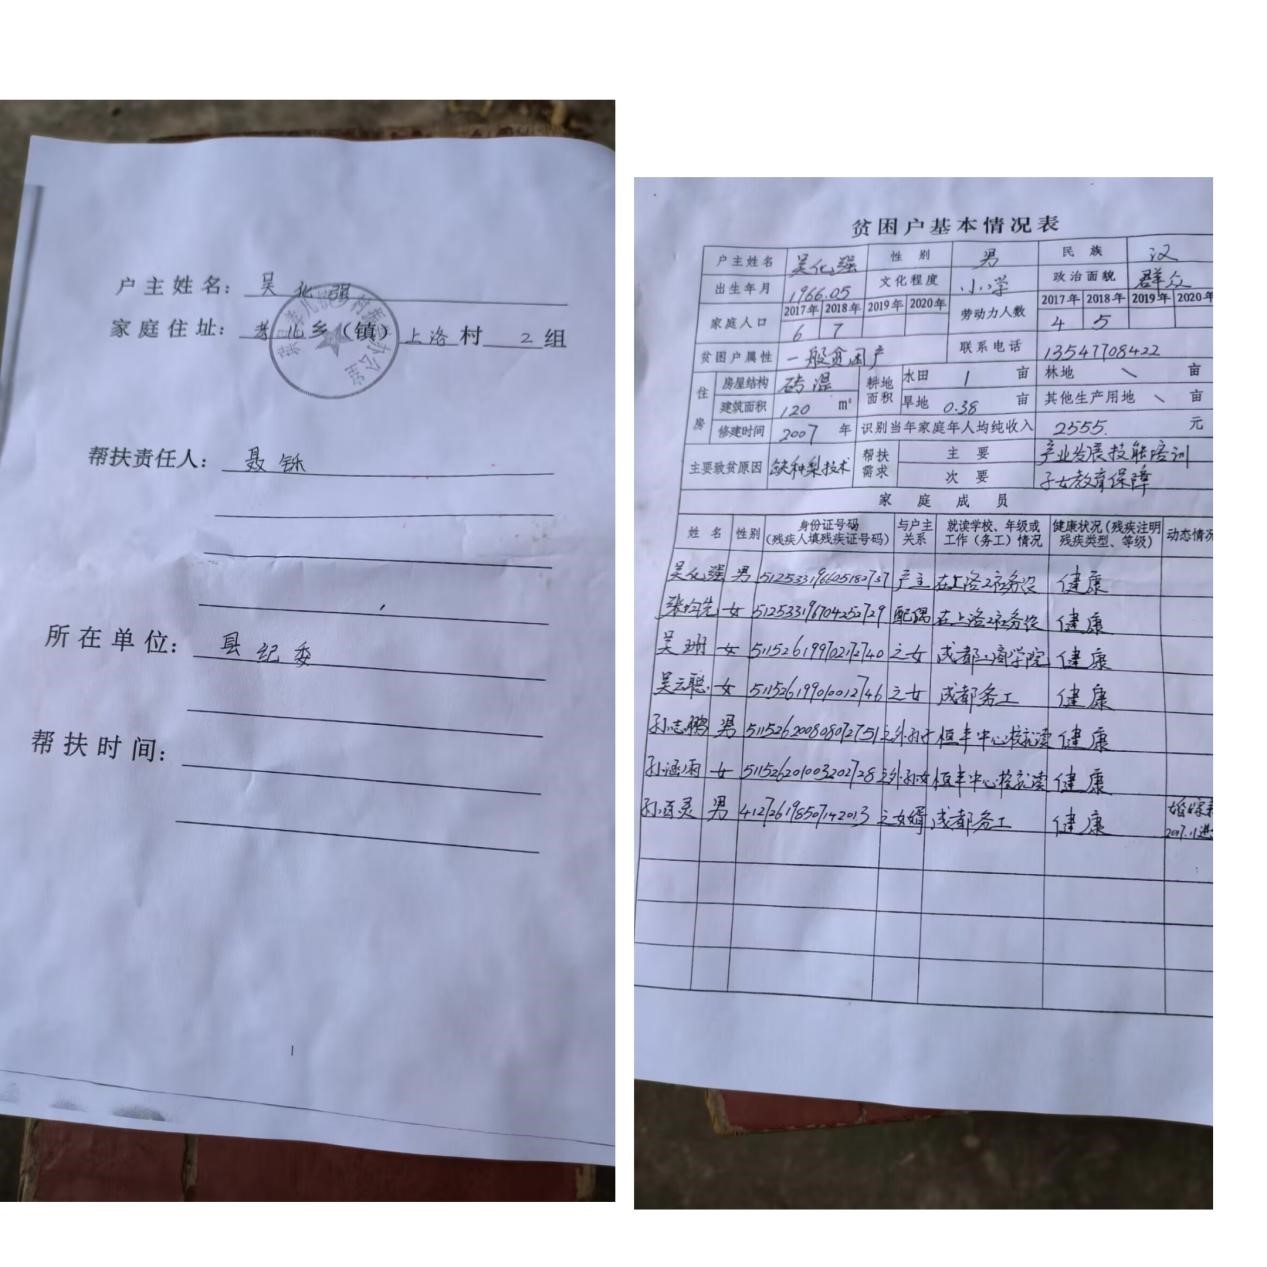 户主姓名：吴化强
家庭住址：孝儿乡（镇）上洛村 2 组
帮扶责任人：聂铄
所在单位：县纪委
帮扶时间：
1
贫困户基本情况表
户主姓名 吴化强 性别 男 民族 汉
出生年月 1966.05 文化程度 小学 政治面貌 群众
家庭人口 2017年 2018年 2019年 2020年 劳动力人数 2017年 2018年 2019年 2020年
6 7 4 5
贫困户属性 一般贫困户 联系电话 13547708422
住房 房屋结构 砖混 耕地面积 水田 1 亩 林地 \ 亩
建筑面积 120 m² 旱地 0.38 亩 其他生产用地 \ 亩
修建时间 2007 年 识别当年家庭年人均纯收入 2555. 元
主要致贫原因 缺种梨技术 帮扶需求 主要 产业发展技能培训
次要 子女教育保障
家庭成员
姓名 性别 身份证号码（残疾人填残疾证号码） 与户主关系 就读学校、年级或工作（务工）情况 健康状况（残疾注明残疾类型、等级） 动态情况
吴化强 男 512533196605182737 户主 在上洛2社务农 健康
女 512533196704252729 配偶 在上洛2社务农 健康
吴珊 女 511526199702172740 之女 成都工商学院 健康
吴云聪 女 511526199010012746 之女 成都务工 健康
孙志鹏 男 511526200808072751 之外孙 恒丰中心校就读 健康
孙涵雨 女 511526201003202728 之外孙女 恒丰中心校就读 健康
男 412726198507142013 之女婿 成都务工 健康 婚嫁
2017.11